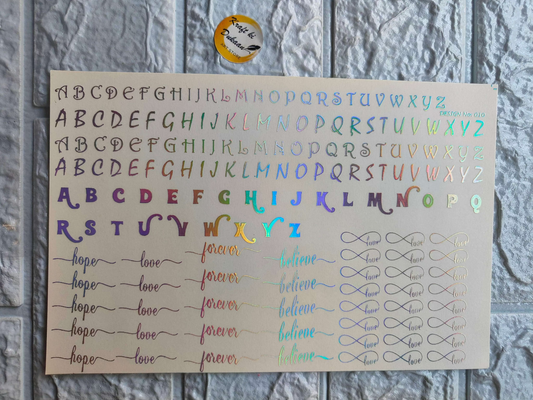 Kraft ki
Dukaan
ABCDEFGHIJKLMNOPQRSTUVWXYZ
DESIGN No-010
ABCDEFGHIJKLMNOPQRSTUVWXYZ
ABCDEFGHIJKLMNOPQRSTUVWXYZ
ABCDEFGHIJKLMNOPQRSTUVWXYZ
A B C D E F G H I J K L M N O P Q
R S T U V W X Y Z
hope love forever believe love love love
love love love
hope love forever believe love love love
love love love
hope love forever believe love love love
love love love
hope love forever believe love love love
love love love
hope love forever believe love love love